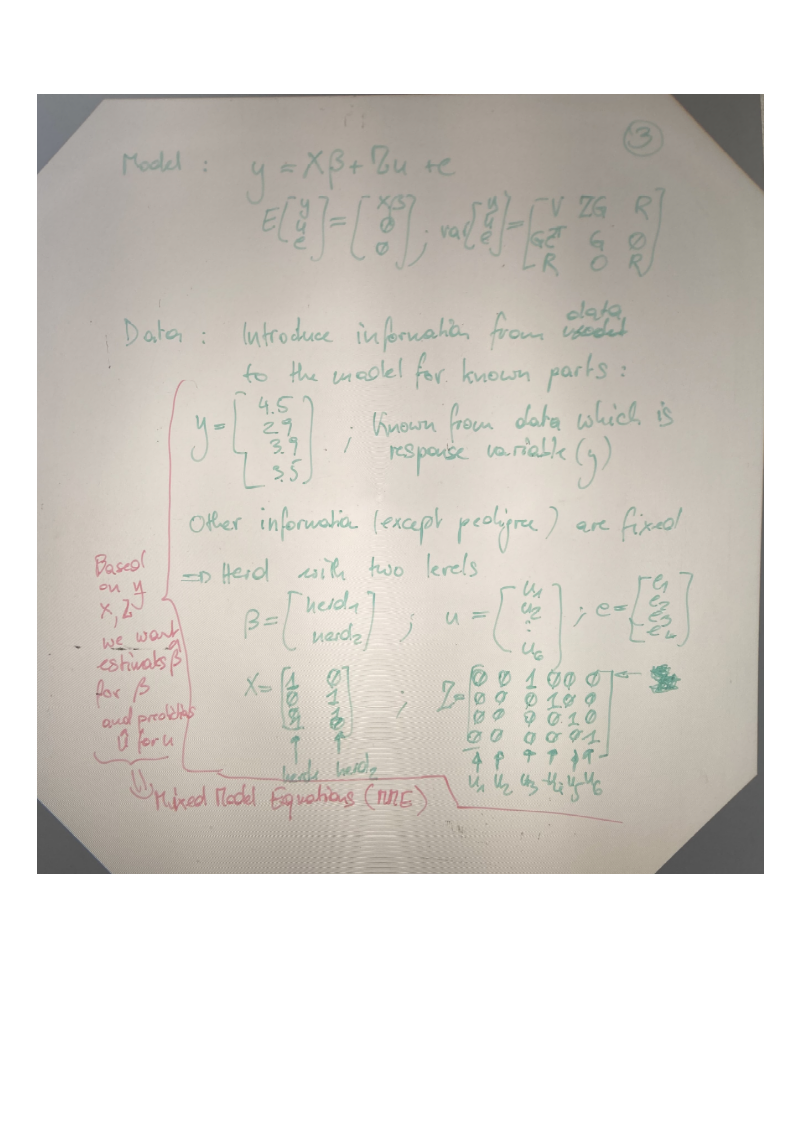 ③
Model : y = Xβ + Zu + e
E[y u e] = [Xβ 0 0] ; var[y u e] = [V ZG R
GZᵀ G 0
R 0 R]
Data : Introduce information from data
to the model for known parts :
y = [4.5 2.9 3.9 3.5] ; Known from data which is
response variable (y)
Other informatia (except pedigree) are fixed
⇒ Herd with two levels
β = [herd₁ herd₂] ; u = [u₁ u₂ : u₆] ; e = [e₁ e₂ e₃ e₄]
X = [1 0
0 1
0 1
1 0]
herd₁ herd₂
; Z = [0 0 1 0 0 0
0 0 0 1 0 0
0 0 0 0 1 0
0 0 0 0 0 1]
u₁ u₂ u₃ u₄ u₅ u₆
Based
on y
X, Z
we want
estimats β̂
for β
and predictios
û for u
⇒ Mixed Model Equations (MME)